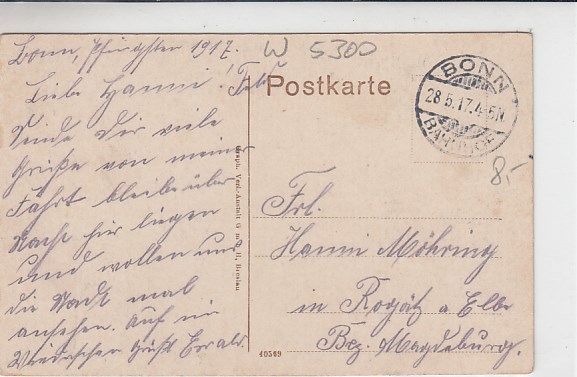 Bonn, Pfingsten 1917.
W 5300
Liebe Hanni!
Sende Dir viele
Grüße von meiner
Fahrt bleibe über
Nacht hier liegen
und wollen uns
die Stadt mal
ansehen. Auf ein
Wiedersehen Grüßt Ewald.
Postkarte
BONN
28.5.17.4-5N
BAHNHOF
8,-
Frl.
Hanni Möhring
in Rogätz a Elbe
Bez. Magdeburg.
Graph. Verl.-Anstalt G. m. b. H. Breslau
40569